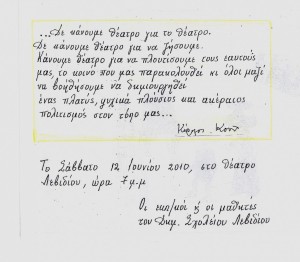 ...Δε κάνουμε θέατρο για το θέατρο.
Δε κάνουμε θέατρο για να ζήσουμε.
Κάνουμε θέατρο για να πλουτίσουμε τους εαυτούς
μας, το κοινό που μας παρακολουθεί κι όλοι μαζί
να βοηθήσουμε να δημιουργηθεί
ένας πλατύς, ψυχικά πλούσιος και ακέραιος
πολιτισμός στον τόπο μας...
Κάρολος Κουν
Το Σάββατο 12 Ιουνίου 2010, στο θέατρο
Λεβιδίου, ώρα 7 μ.μ
Οι εκπ/κοί & οι μαθητές
του Δημ. Σχολείου Λεβιδίου